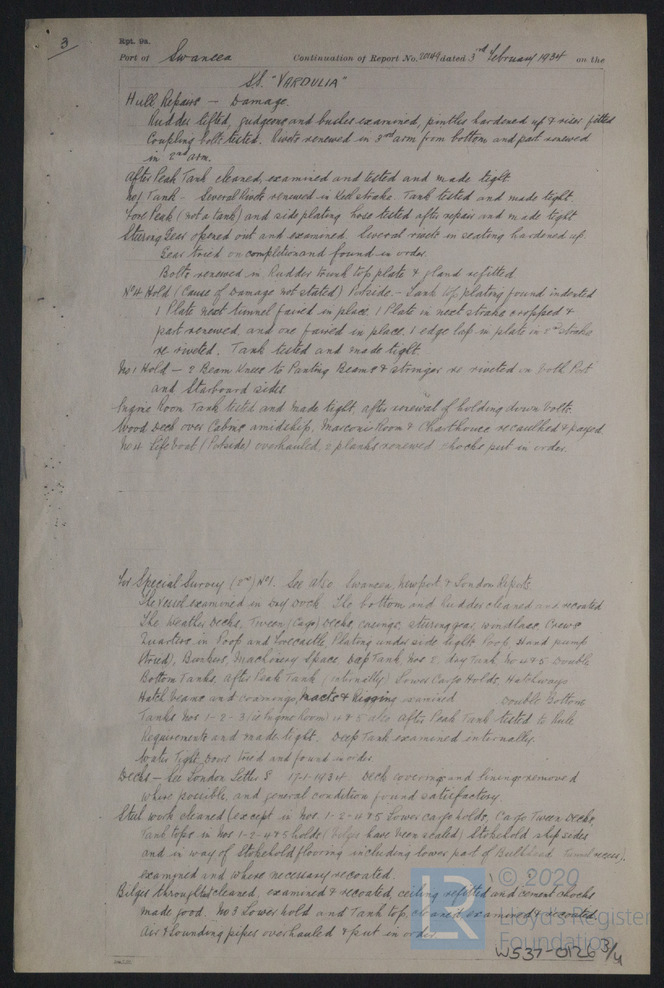 3
Rpt. 9a.
Port of Swansea Continuation of Report No. 20149 dated 3rd February 1934 on the
S.S. "VARDULIA"
Hull Repairs — Damage.
Rudder lifted, gudgeons and bushes examined, pintles hardened up & riser fitted
Coupling bolts tested. Rivets renewed in 3rd arm from bottom and part renewed
in 2nd arm.
After Peak Tank cleaned, examined and tested and made tight.
No 1 Tank - Several Rivets renewed in Keel strake. Tank tested and made tight.
Fore Peak (not a tank) and side plating hose tested after repair and made tight
Steering Gear opened out and examined. Several rivets in seating hardened up.
Gear tried on completion and found in order.
Bolts renewed in Rudder trunk top plate & gland refitted
No 4 Hold (Cause of Damage not stated) Portside. - Tank top plating found indented
1 Plate next tunnel faired in place. 1 Plate in next strake cropped &
part renewed, and one faired in place. 1 edge lap in plate in 2nd strake
re riveted. Tank tested and made tight.
No 1 Hold — 2 Beam knees to Panting Beams & stringer re riveted in both Port
and Starboard sides
Engine Room Tank tested and made tight, after renewal of holding down bolts.
Wood Deck over Cabins amidship, Marconi Room & Charthouse recaulked & payed
No 4 Lifeboat (Portside) overhauled, 2 planks renewed, chocks put in order.
For Special Survey (2nd) No 1. See also Swansea, Newport & London Reports
The Vessel examined in dry dock. The bottom and Rudder cleaned and recoated
The Weather Decks, Tween (Cargo) decks casings, steering gear, windlass, Crews
Quarters in Poop and Forecastle Plating under side lights Poop, Hand pump
(tried), Bunkers, Machinery Space, Deep Tank, Nos Tank No 4 & 5 Double
Bottom Tanks, After Peak Tank (internally) Lower Cargo Holds, Hatchways
Hatch beams and coamings, Masts & Rigging examined Double Bottom
Tanks Nos 1 - 2 - 3 (is Engine Room) 4 & 5 also After Peak Tank tested to Rule
Requirements and made tight. Deep Tank examined internally.
Water Tight Doors tried and found in order
Decks — See London Letter S 17-1-1934 Deck coverings and linings removed
where possible, and general condition found satisfactory.
Steel work cleaned (except in Nos 1-2-4 & 5 Lower cargo holds, Cargo Tween Decks,
Tank tops in Nos 1-2-4 & 5 holds (bilges have been scaled) Stokehold ship sides
and in way of Stokehold flooring including lower part of Bulkhead, Tunnel recess),
examined and where necessary recoated.
Bilges throughout cleaned, examined & recoated, ceiling refitted and cement chocks
made good. No 3 Lower hold and Tank top, cleaned examined & recoated.
Air & Sounding pipes overhauled & put in order
LR
© 2020
Lloyd's Register
Foundation
W537-0126 3/4